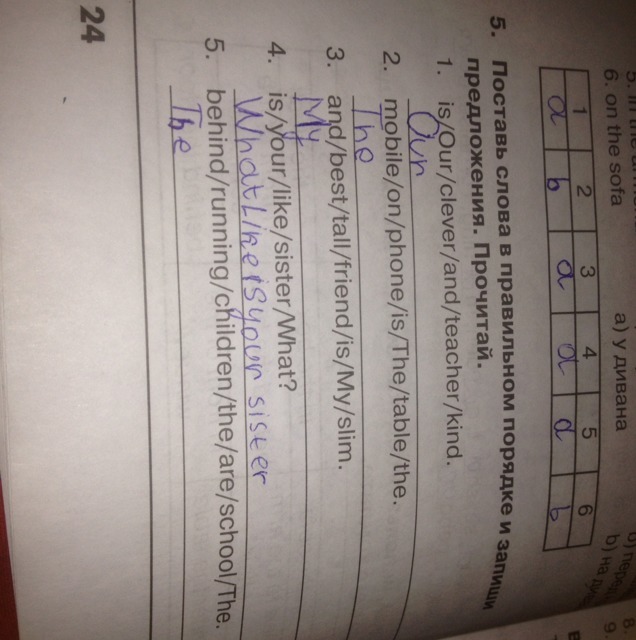 6. on the sofa a) у дивана
1 2 3 4 5 6
a b a a a b
5. Поставь слова в правильном порядке и запиши
предложения. Прочитай.
1. is/Our/clever/and/teacher/kind.
Our
2. mobile/on/phone/is/The/table/the.
The
3. and/best/tall/friend/is/My/slim.
My
4. is/your/like/sister/What?
What like is your sister
5. behind/running/children/the/are/school/The.
The
24